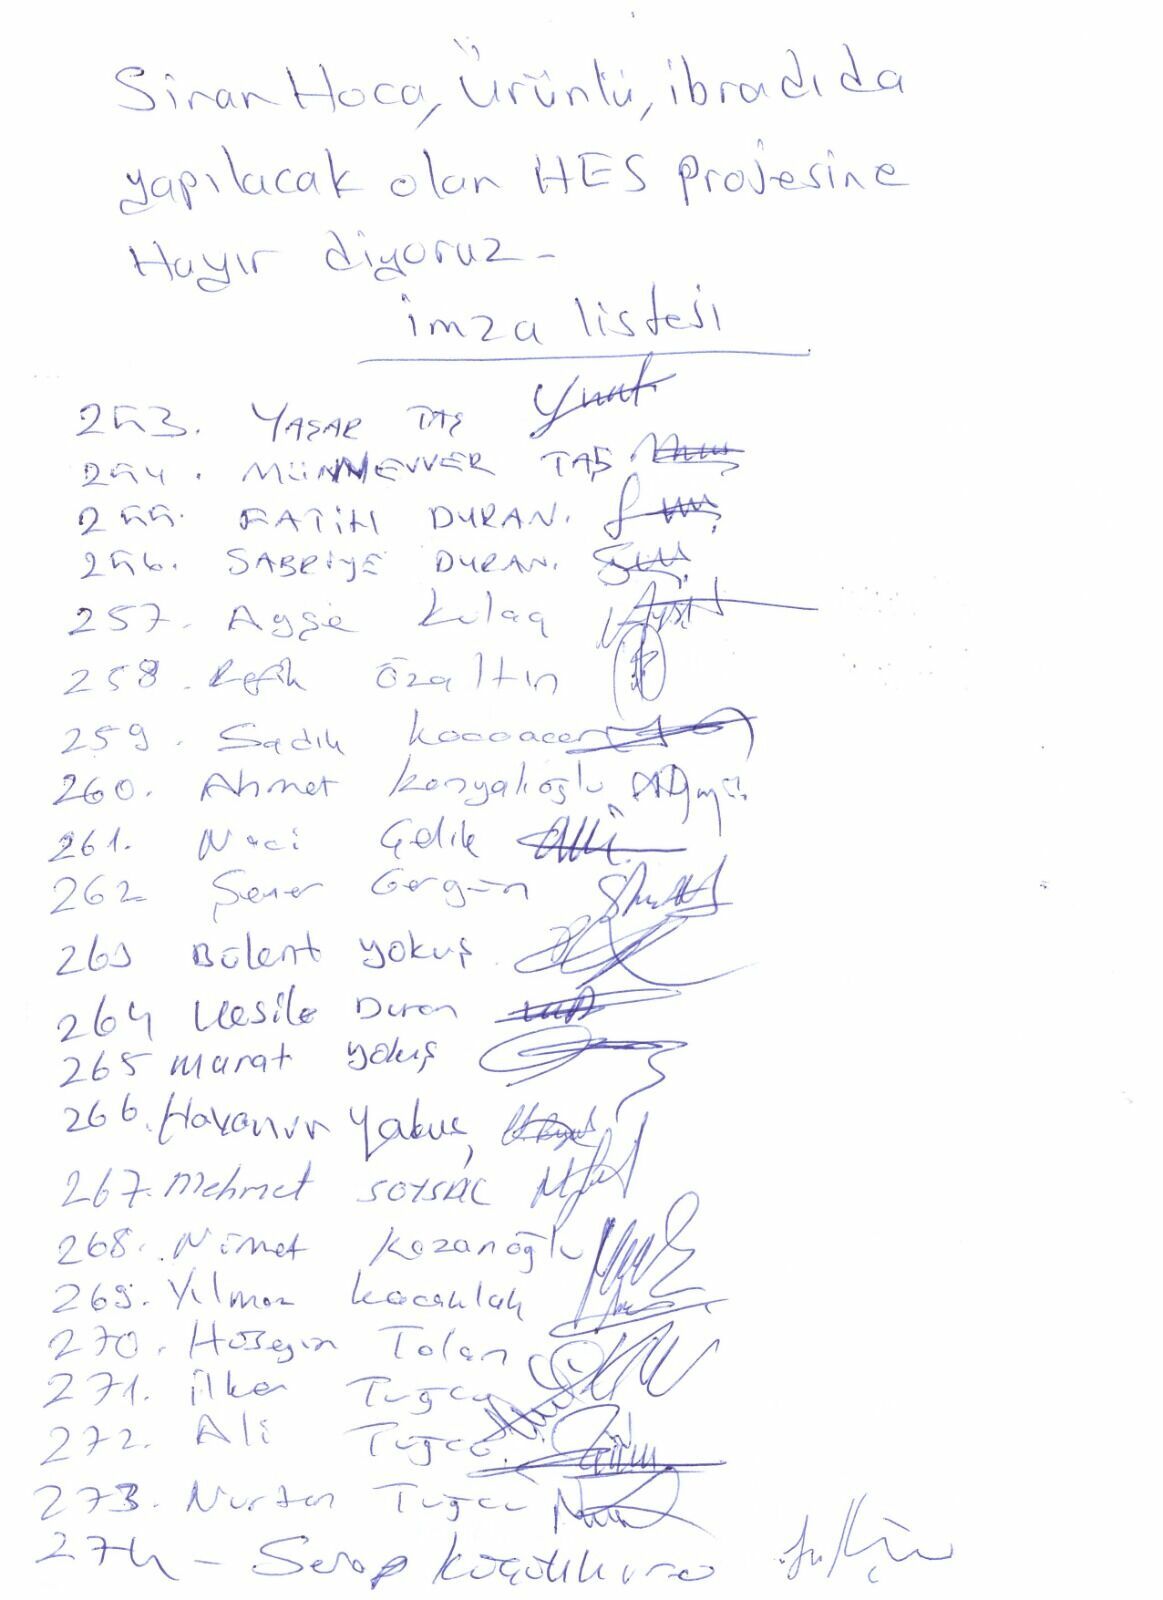 Sinan Hoca, Ürünlü, ibradıda
yapılacak olan HES projesine
Hayır diyoruz-
imza listesi
253. YAŞAR TAŞ
254. MÜNNEVVER TAŞ
255. FATİH DURAN.
256. SABRİYE DURAN.
257. Ayşe Kılaç
258. Refik Özaltın
259. Sadık
260. Ahmet Konyalıoğlu
261. Naci Çelik
262 Şener Gergün
263 Bülent yokuş
264 Vesile Duran
265 Murat yokuş
266. Havanur Yakuş
267. Mehmet SOYSAL
268. Nimet Kozanoğlu
269. Yılmaz Kocaklah
270. Hüseyin Tolan
271. ilker Tuğcu
272. Ali Tuğcu
273. Nurten Tuğcu
274 - Serap